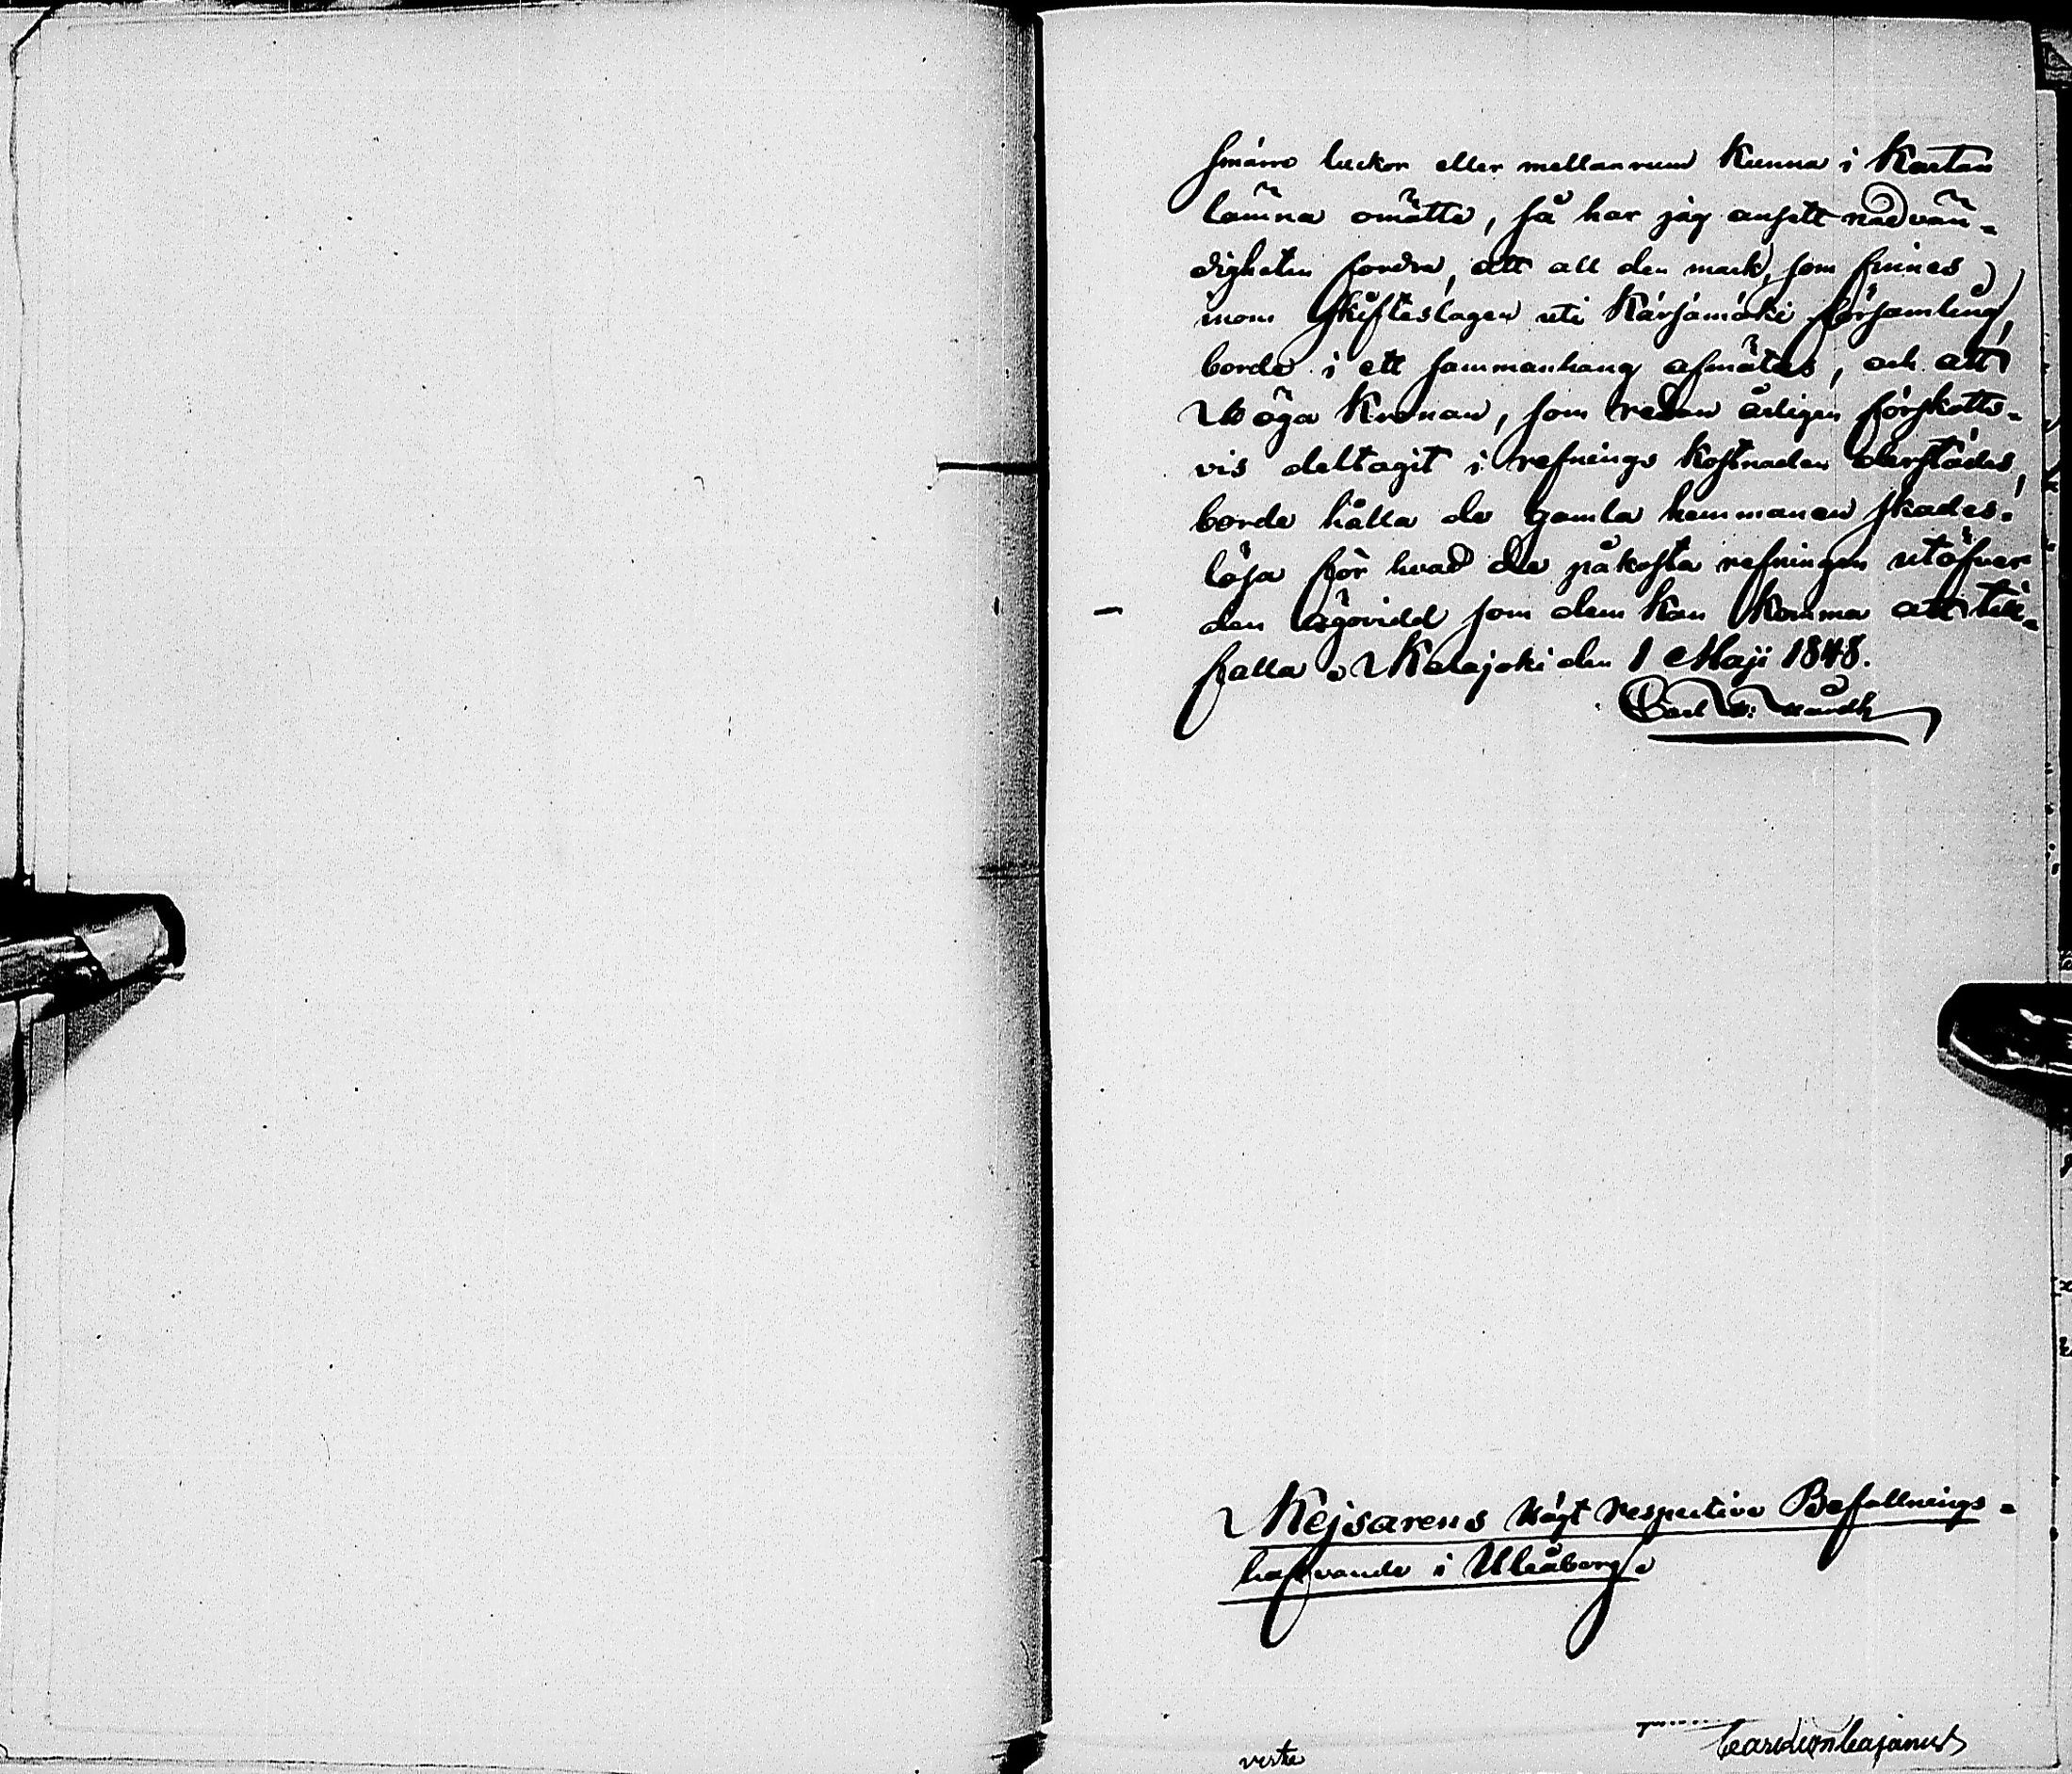 smärre luckor eller mellanrum kunna i Kartan
lämna omätte, så har jag ansett nödvän-
digheten fordra, att all den mark, som finnes
inom Skifteslagen uti Kärsämäki församling,
borde i ett sammanhang afmätas, och att
Höga Kronan, som redan årligen förskotts-
vis deltagit i refnings kostnaden derstädes,
borde hålla de gamla hemmanen skades-
lösa för hvad de påkosta refningen utöfver
den ägovidd som dem kan komma att till-
falla. Kalajoki den 1 Maji 1848.
Carl
Kejsarens Högt respective Befallnings-
hafvande i Uleåborg.
Cajanus